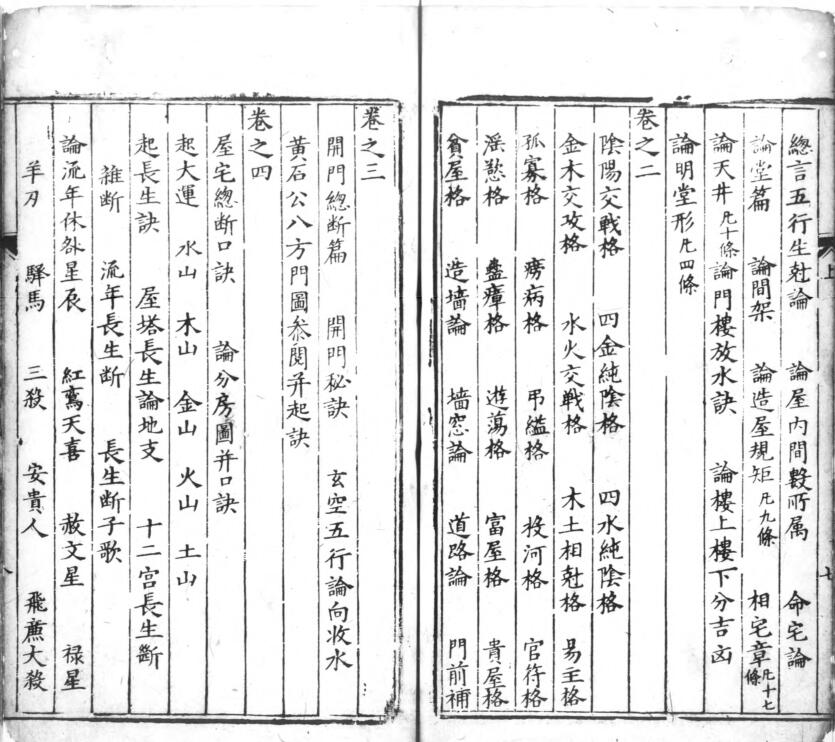 總言五行生尅論 論屋内間數所属 命宅論
論堂篇 論間架 論造屋規矩凡九條 相宅章凡十七條
論天井凡十條 論門樓放水訣 論樓上樓下分吉凶
論明堂形凡四條
卷之二
陰陽交戰格 四金純陰格 四水純陰格
金木交攻格 水火交戰格 木土相尅格 易主格
孤寡格 癆病格 弔縊格 投河格 官符格
滛慾格 蠱瘴格 遊蕩格 富屋格 貴屋格
貧屋格 造墻論 墻窓論 道路論 門前補
上
七
卷之三
開門總断篇 開門秘訣 玄空五行論向收水
黃石公八方門圖叅閱并起訣
卷之四
屋宅總断口訣 論分房圖并口訣
起大運 水山 木山 金山 火山 土山
起長生訣 屋塔長生論地支 十二宫長生斷
雜断 流年長生断 長生断子歌
論流年休咎星辰 紅鸞天喜 赦文星 禄星
羊刃 驛馬 三殺 安貴人 飛廉大殺